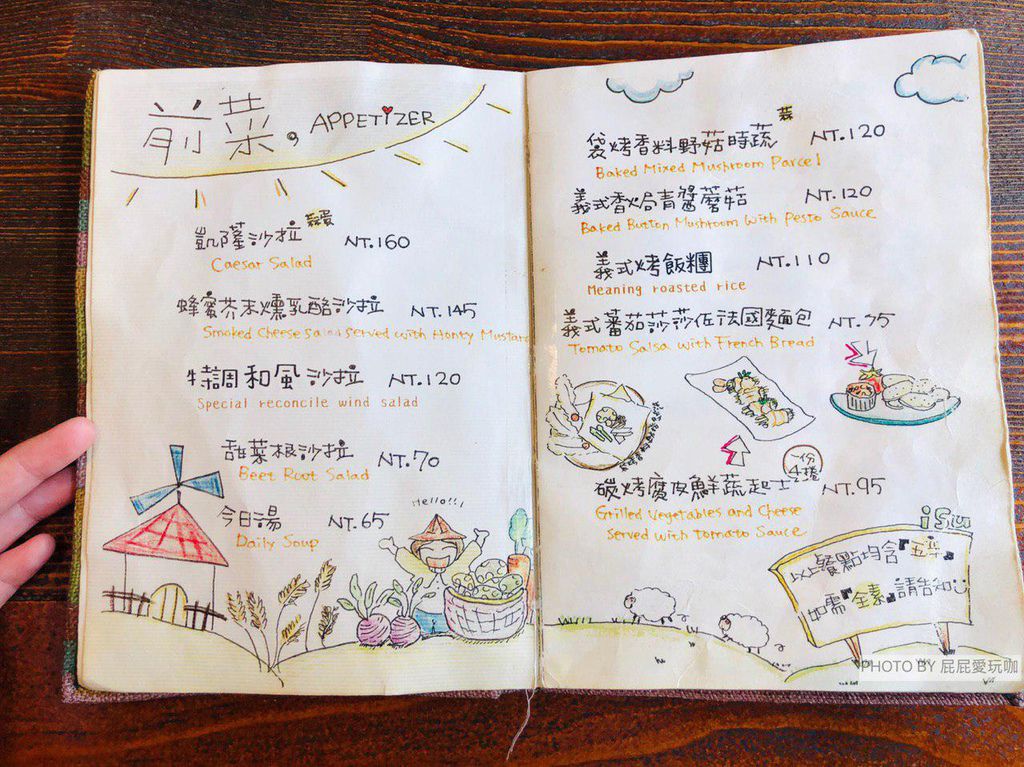 前菜, APPETIZER
凱薩沙拉 蒜蛋 NT.160
Caesar Salad
蜂蜜芥末燻乳酪沙拉 NT.145
Smoked Cheese Salad served with Honey Mustard
特調和風沙拉 NT.120
Special reconcile wind salad
甜菜根沙拉 NT.70
Beet Root Salad
今日湯 NT.65
Daily Soup
Hello!!!
袋烤香料野菇時蔬 蒜 NT.120
Baked Mixed Mushroom Parcel
義式香焗青醬蘑菇 NT.120
Baked Button Mushroom with pesto Sauce
義式烤飯糰 NT.110
Meaning roasted rice
義式蕃茄莎莎佐法國麵包 NT.75
Tomato Salsa with French Bread
一份
4捲
碳烤腐皮鮮蔬起士 NT.95
Grilled Vegetables and Cheese
Served with Tomato Sauce
以上餐點均含『五辛』
如需『全素』請告知
PHOTO BY 屁屁愛玩咖